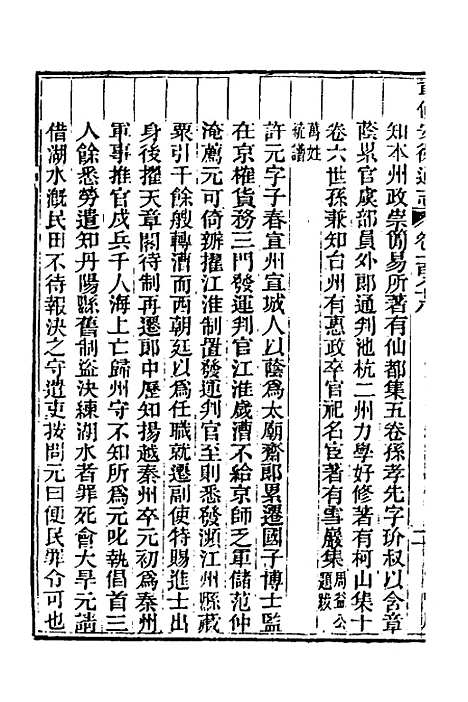 重修安徽通志 卷二百
知本州政崇簡易所著有仙都集五卷孫孝先字玠叔以含章
蔭累官虞部員外郎通判池杭二州力學好修著有柯山集十
卷六世孫兼知台州有惠政卒官祀名宦著有雪巖集周益公題跋
萬姓統譜
許元字子春宣州宣城人以蔭為太廟齋郎累遷國子博士監
在京榷貨務三門發運判官江淮歲漕不給京師之軍儲范仲
淹薦元可倚辦擢江淮制置發運判官至則悉發瀕江州縣藏
粟引千餘艘轉漕而西朝廷以為任職就遷副使特賜進士出
身後擢天章閣待制再遷郎中歷知揚越秦州卒元初為秦州
軍事推官戍兵千人海上亡歸州守不知所為元叱執倡首三
人餘悉勞遣知丹陽縣舊制盜決練湖水者罪死會大旱元請
借湖水溉民田不待報決之守遣吏按問元曰便民罪令可也